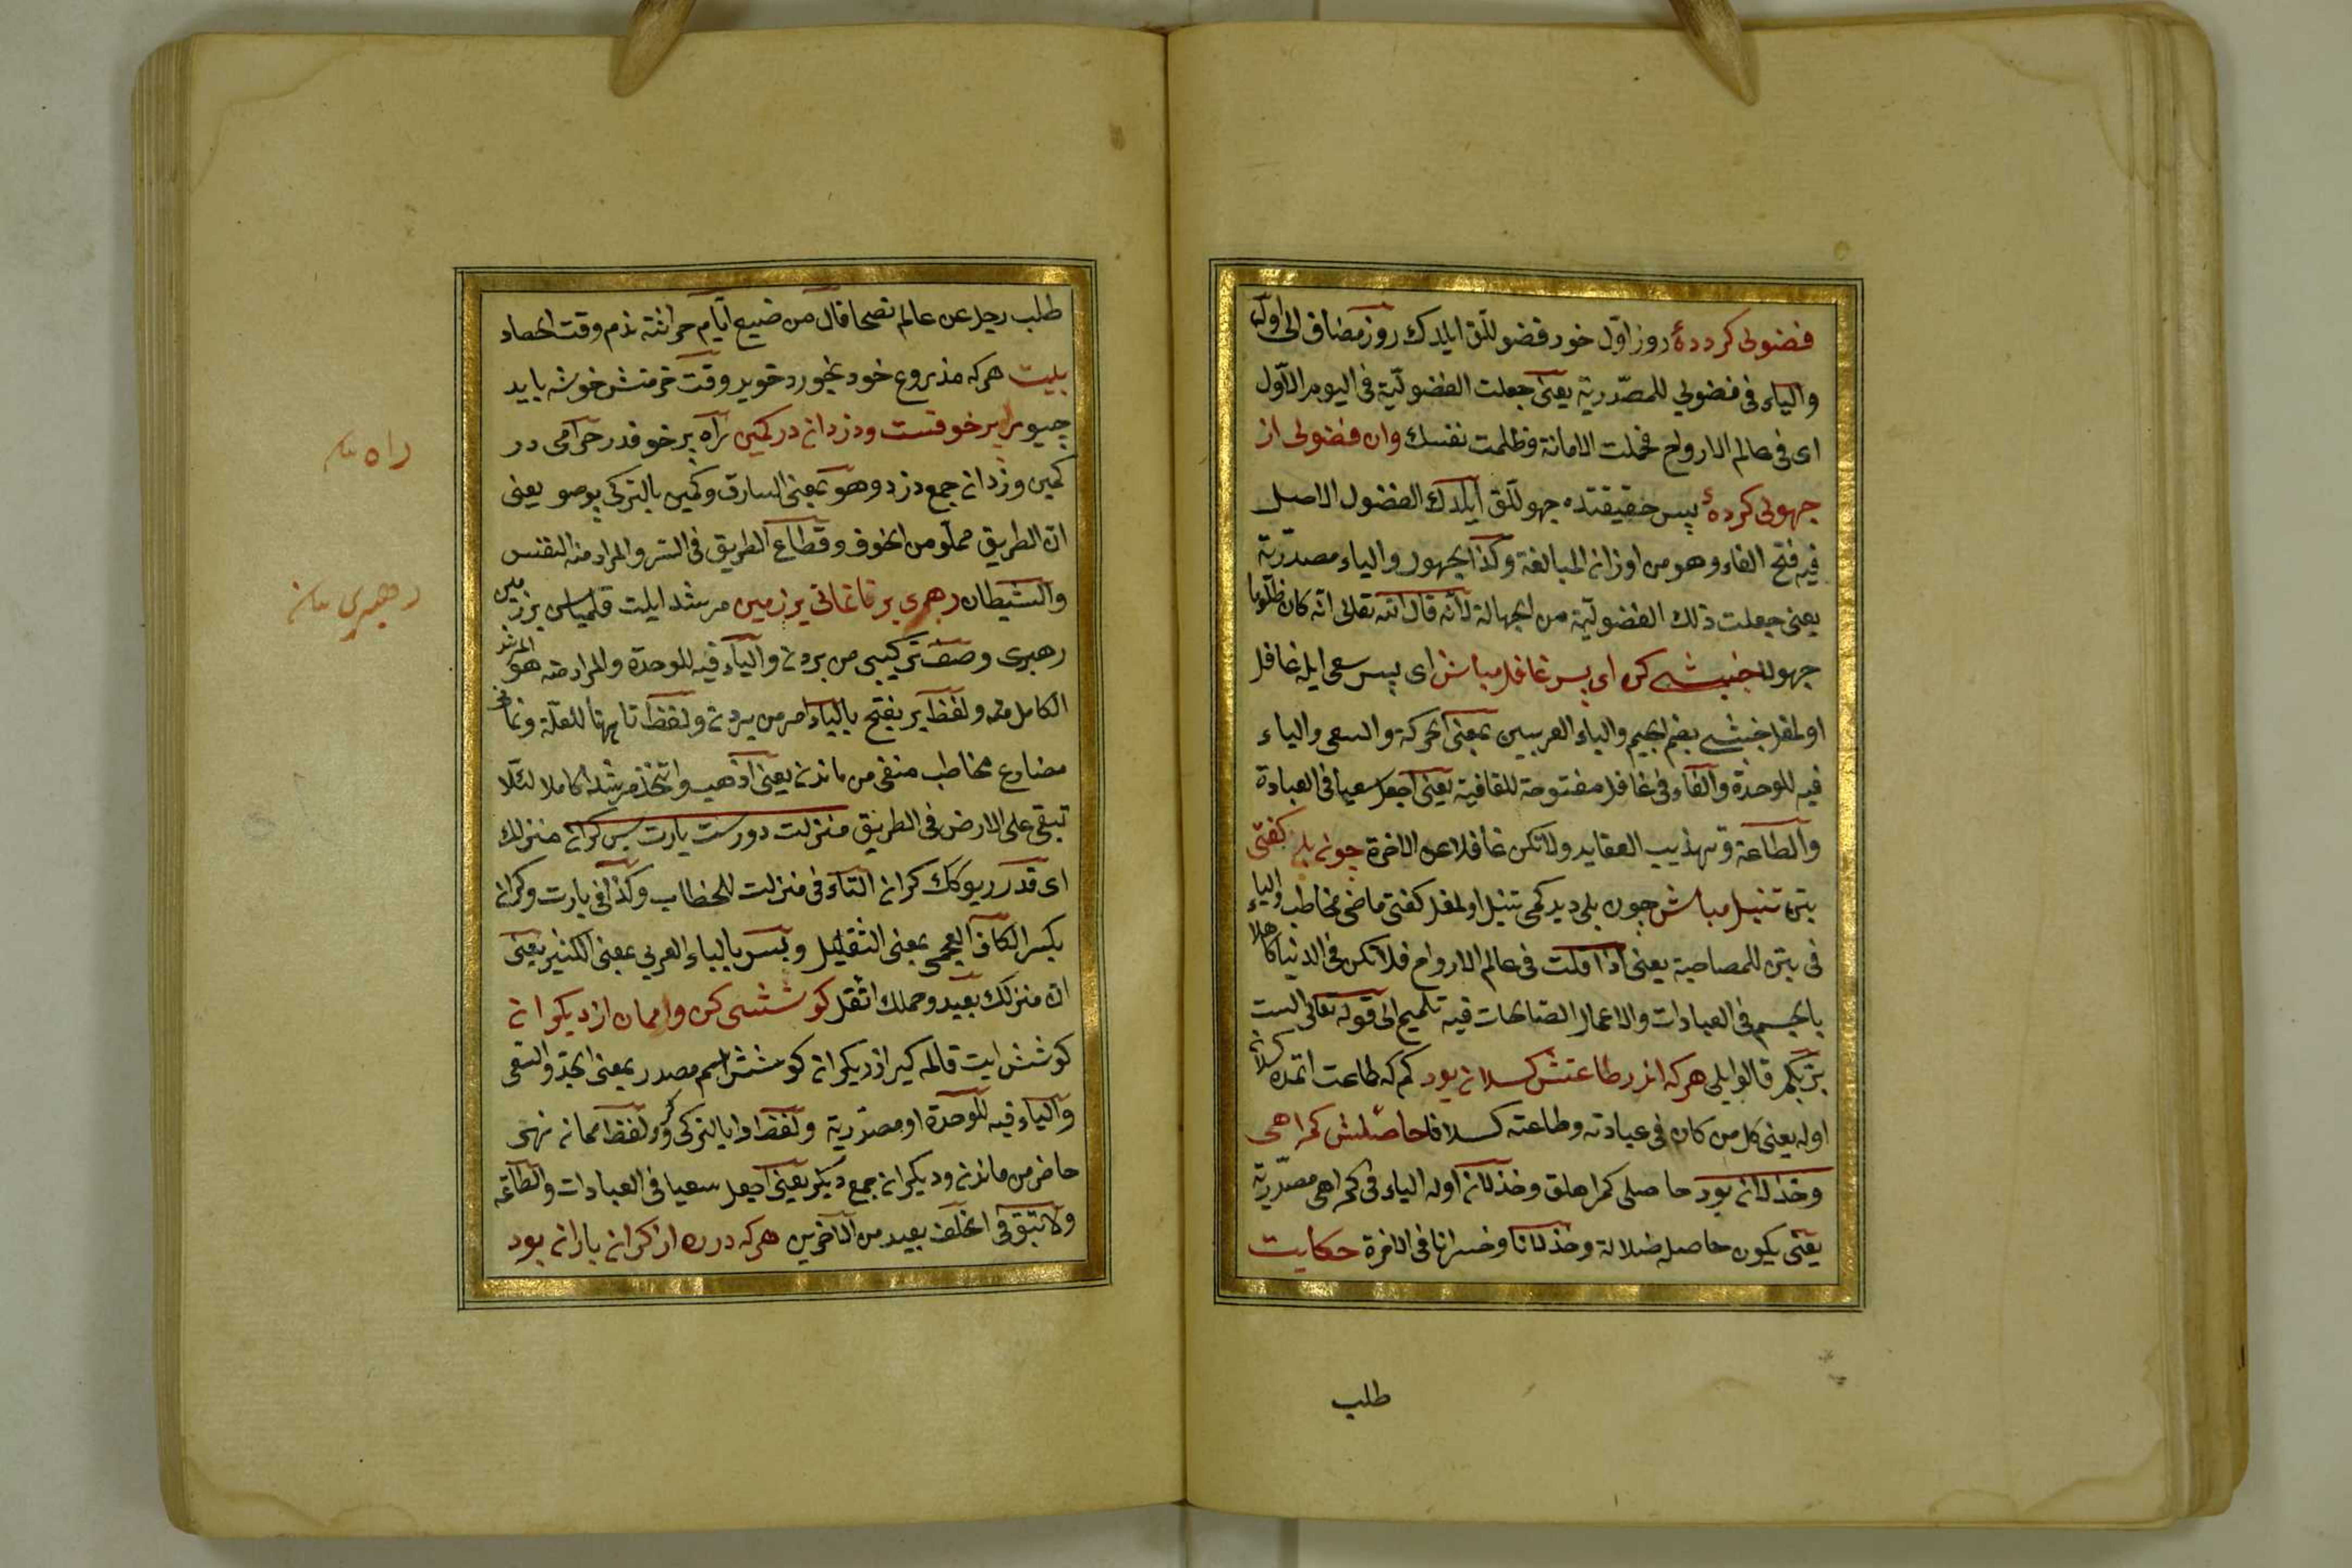 فضولی کرده روز اول خود فضوللق ایلدك روز مضاف الی اول
والیاء فی فضولی للمصدریة یعنی جعلت الفضولیة فی الیوم الاول
ای فی عالم الارواح فحملت الامانة وظلمت نفسك وان فضولی از
جهولی کردهٔ پس حقیقتده جهوللق ایلدك الفضول الاصل
فیه فتح الفاء وهو من اوزان المبالغة وکذا الجهول والیاء مصدریة
یعنی جعلت ذلك الفضولیة من الجهالة لانه قال الله تعالی انه کان ظلوما
جهولا جنبشی کن ای پسر غافل مباش ای پسر سعی ایله غافل
اولمغل جنبشی بضم الجیم والباء العربیین بمعنی الحرکة والسعی والیاء
فیه للوحدة والفاء فی غافل مفتوحة للقافیة یعنی اجعل سعیا فی العبادة
والطاعة وتهذیب العقاید ولا تکن غافلا عن الاخرة چون بلی کفتی
بتن تنبل مباش چون بلی دیدك تنبل اولمغل کفتی ماضی مخاطب والباء
فی بتن للمصاحبة یعنی اذا قلت فی عالم الارواح فلا تکن فی الدنیا کاهلا
بالجسم فی العبادات والاعمال الصالحات فیه تلمیح الی قوله تعالی الست
بربکم قالوا بلی هرکه اندر طاعتش کسلان بود کم که طاعت اتمده کسلان
اوله یعنی کل من کان فی عبادته وطاعته کسلانا حاصلش کمراهی
وخذلان بود حاصلی کمراهلق وخذلان اوله الیاء فی کمراهی مصدریة
یعنی یکون حاصله ضلالة وخذلانا وخسرانا فی الاخرة حکایت
طلب
طلب رجل عن عالم نصحا قال من ضیع ایام حراثته ندم وقت الحصاد
بیت هرکه مزروع خود بخورد خوید وقت خرمنش خوشه باید
چیو راه پر خوفست ودزدان در کمین راه پر خوفدر حرامی در
کمین دزدان جمع دزد وهو بمعنی السارق وکمین بالترکی پوصو یعنی
ان الطریق مملو من الخوف وقطاع الطریق فی الستر والمراد منه النفس
والشیطان رهبری بر تا نمانی بر زمین مرشد ایلت قلمیاسن بر زمین
رهبری وصف ترکیبی من بردن والیاء فیه للوحدة والمراد منه هو المرشد
الکامل منه ولفظ بر بفتح بالباء امر من بردن ولفظ تا ههنا للعلة ونمانی
مضارع مخاطب منفی من ماندن یعنی اذهب واتخذ مرشدا کاملا لئلا
تبقی علی الارض فی الطریق منزلت دورست بارت بس کران منزلك
ای قدر ریوکك کران التاء فی منزلت للخطاب وکذا فی بارت وکران
بکسر الکاف العجمی بمعنی الثقیل وبس بالباء العربی بمعنی الکثیر یعنی
ان منزلك بعید وحملك اثقل کوششی کن وا ممان از دیکران
کوشش ایت قالمه کیرو دیکران کوشش اسم مصدر بمعنی الجد والسعی
والیاء فیه للوحدة او مصدریة ولفظ وا بالترکی کرو لفظ ممان نهی
حاضر من ماندن ودیکران جمع دیکر یعنی اجعل سعیا فی العبادات والطاعة
ولا تبق فی الخلف بعید من الاخرین هرکه در ره از کران باران بود